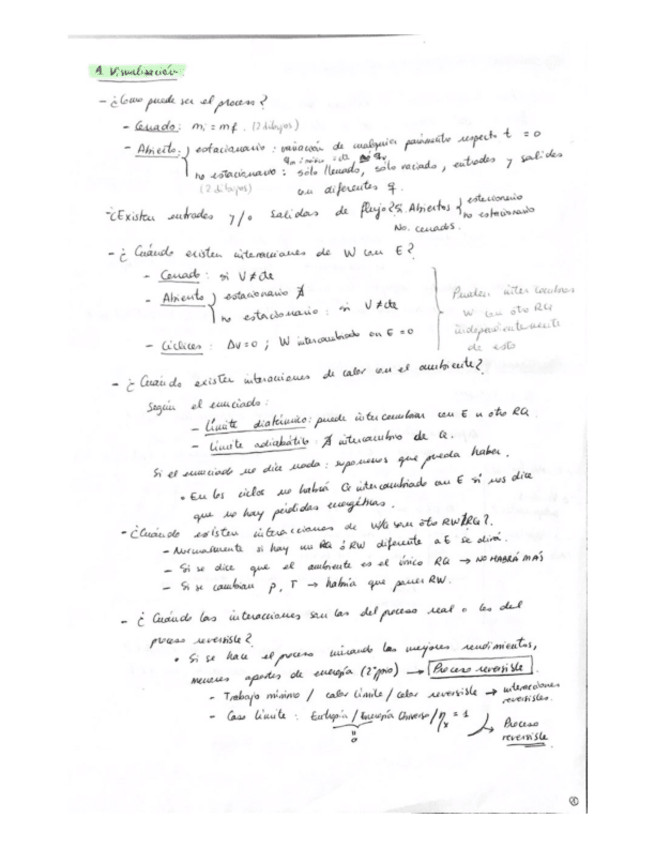 1. Visualización.
- ¿Como puede ser el proceso?
- Cerrado: mi = mf. (2 dibujos)
- Abierto: estacionario: variación de cualquier parámetro respecto t = 0
no estacionario: sólo llenado, sólo vaciado, entradas y salidas
(2 dibujos) con diferentes q.
- ¿Existen entradas y/o salidas de flujo? Si. Abiertos { estacionario
no estacionario
No. cerrados.
- ¿Cuándo existen interacciones de W con E?
- Cerrado: si V ≠ cte
- Abierto estacionario ∄
no estacionario: si V ≠ cte
- Cíclicos: ΔV = 0; W intercambiado con E = 0
Pueden intercambiar
W con otro RQ
independientemente
de esto
- ¿Cuándo existen interacciones de calor con el ambiente?
Según el enunciado:
- Límite diatérmico: puede intercambiar con E u otro RQ.
- Límite adiabático: ∄ intercambio de Q.
Si el enunciado no dice nada: suponemos que pueda haber.
• En los ciclos no habrá Q intercambiado con E si nos dice
que no hay pérdidas energéticas.
- ¿Cuándo existen interacciones de W/Q con otro RW/RQ?.
- Normalmente si hay un RQ ó RW diferente a E se dirá.
- Si se dice que el ambiente es el único RQ → NO HABRÁ MÁS
- Si se cambian p, T → habría que poner RW.
- ¿Cuándo las interacciones son las del proceso real o las del
proceso reversible?
• Si se hace el proceso buscando los mejores rendimientos,
menores aportes de energía (2º ppio) → Proceso reversible
- Trabajo mínimo / calor límite / calor reversible → interacciones
reversibles.
- Caso límite: Entropía / Energía Universo / ηx = 1
0
Proceso
reversible
1